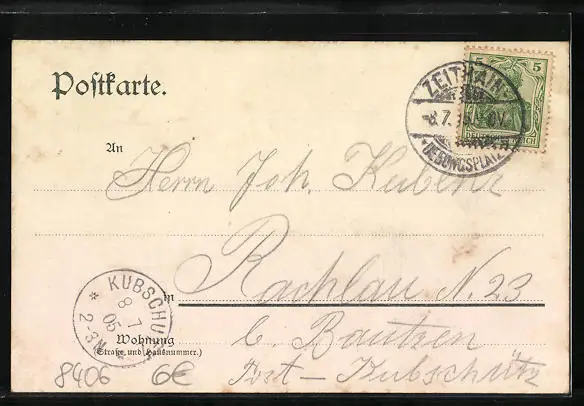 Postkarte.
5 5
ZEITHAIN
8.7.
ÜBUNGSPLATZ
DEUTSCHES REICH
An
Herrn Joh. Kubenz
Rachlau N. 23
in
KUBSCHÜTZ
8 7
05
2-3N
Wohnung
(Straße und Hausnummer.)
b. Bautzen
Post - Kubschütz
8406 6€